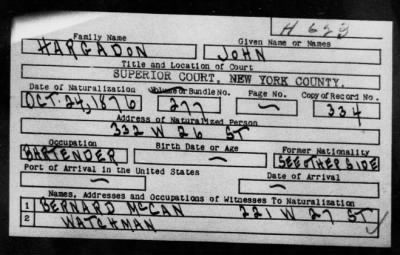 H 623
Family Name Given Name or Names
HARGADON JOHN
Title and Location of Court
SUPERIOR COURT, NEW YORK COUNTY.
Date of Naturalization Volume or Bundle No. Page No. Copy of Record No.
OCT. 24, 1876 277 — 334
Address of Naturalized Person
332 W 26 ST
Occupation Birth Date or Age Former Nationality
BARTENDER — SEE OTHER SIDE
Port of Arrival in the United States Date of Arrival
— —
Names, Addresses and Occupations of Witnesses To Naturalization
1 BERNARD McCAN 221 W 27 ST
2 WATCHMAN